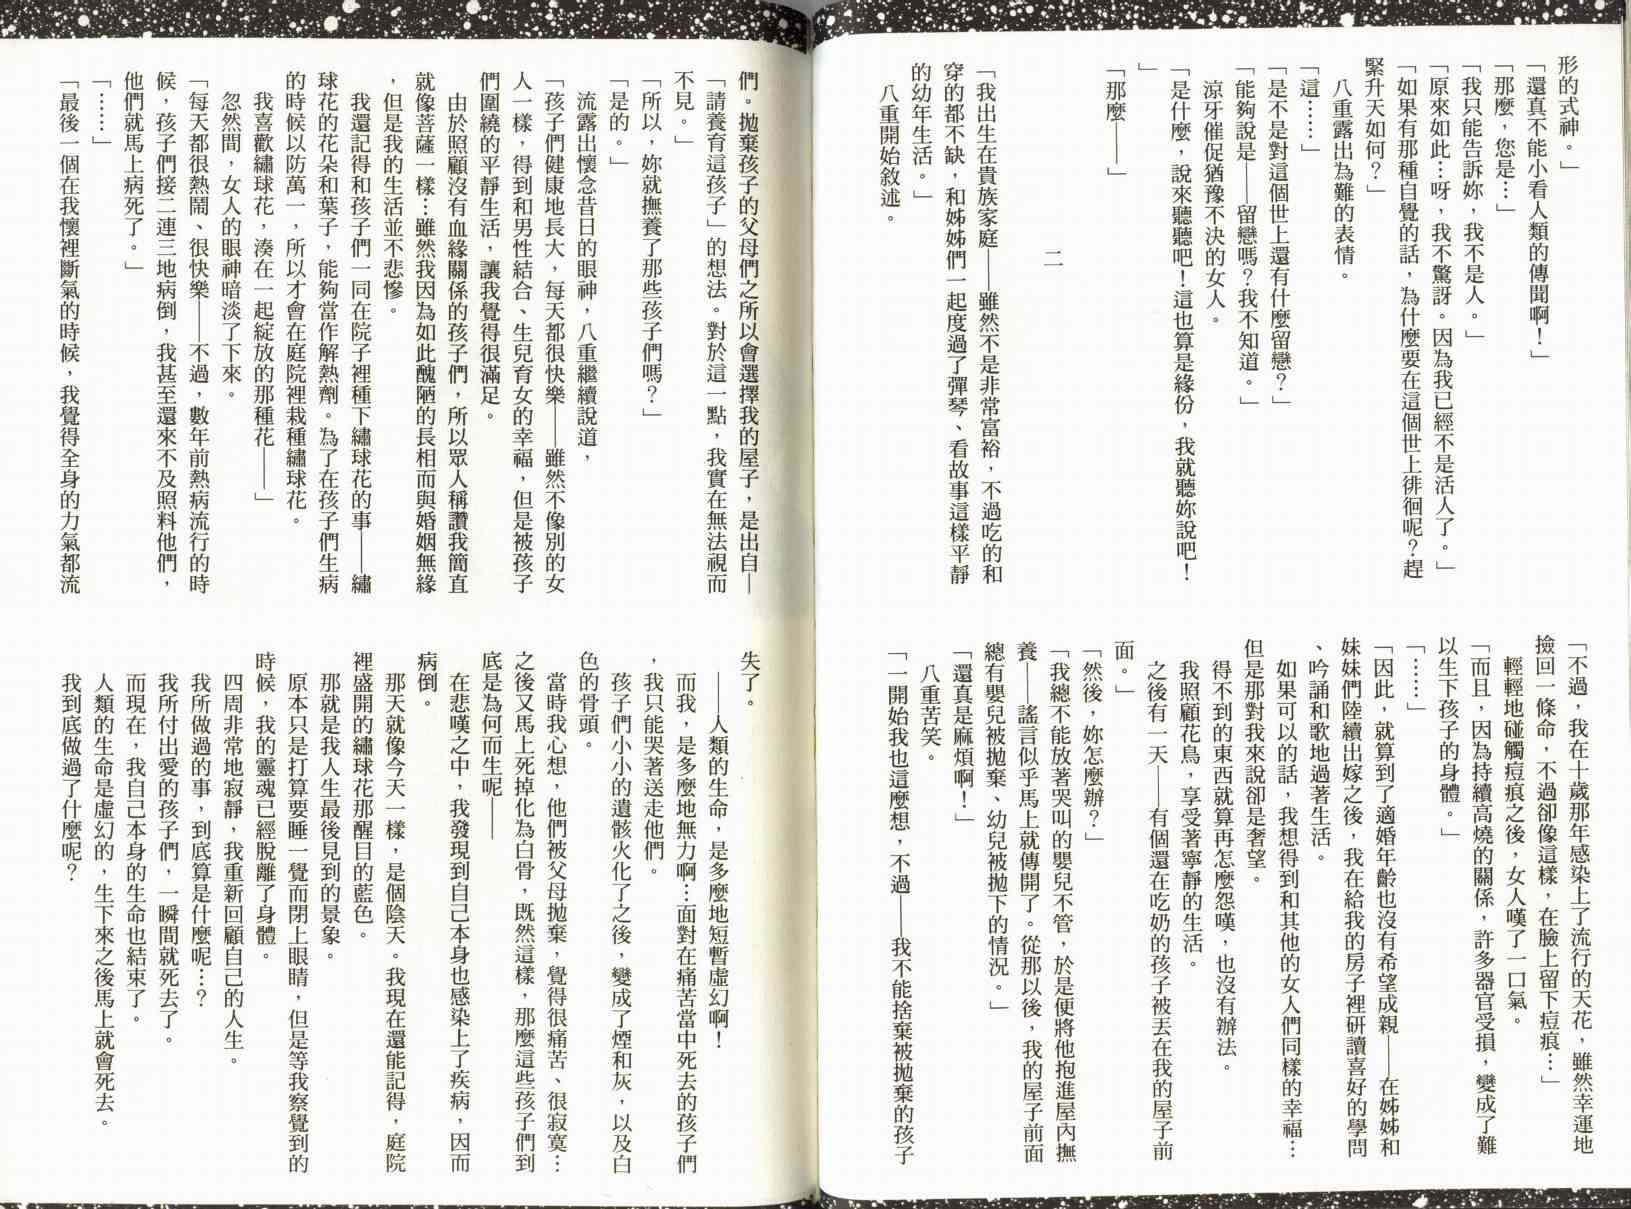 形的式神。」
「還真不能小看人類的傳聞啊！」
「那麼，您是…」
「我只能告訴妳，我不是人。」
「原來如此…呀，我不驚訝。因為我已經不是活人了。」
「如果有那種自覺的話，為什麼要在這個世上徘徊呢？趕
緊升天如何？」
八重露出為難的表情。
「這……」
「是不是對這個世上還有什麼留戀？」
「能夠說是——留戀嗎？我不知道。」
涼牙催促猶豫不決的女人。
「是什麼，說來聽聽吧！這也算是緣份，我就聽妳說吧！
」
「那麼——」
二
「我出生在貴族家庭——雖然不是非常富裕，不過吃的和
穿的都不缺，和姊姊們一起度過了彈琴、看故事這樣平靜
的幼年生活。」
八重開始敘述。
「不過，我在十歲那年感染上了流行的天花，雖然幸運地
撿回一條命，不過卻像這樣，在臉上留下痘痕…」
輕輕地碰觸痘痕之後，女人嘆了一口氣。
「而且，因為持續高燒的關係，許多器官受損，變成了難
以生下孩子的身體。」
「……」
「因此，就算到了適婚年齡也沒有希望成親——在姊姊和
妹妹們陸續出嫁之後，我在給我的房子裡研讀喜好的學問
、吟誦和歌地過著生活。
如果可以的話，我想得到和其他的女人們同樣的幸福…
但是那對我來說卻是奢望。
得不到的東西就算再怎麼怨嘆，也沒有辦法。
我照顧花鳥，享受著寧靜的生活。
之後有一天——有個還在吃奶的孩子被丟在我的屋子前
面。」
「然後，妳怎麼辦？」
「我總不能放著哭叫的嬰兒不管，於是便將他抱進屋內撫
養——謠言似乎馬上就傳開了。從那以後，我的屋子前面
總有嬰兒被拋棄、幼兒被拋下的情況。」
「還真是麻煩啊！」
八重苦笑。
「一開始我也這麼想，不過——我不能捨棄被拋棄的孩子
們。拋棄孩子的父母們之所以會選擇我的屋子，是出自—
「請養育這孩子」的想法。對於這一點，我實在無法視而
不見。」
「所以，妳就撫養了那些孩子們嗎？」
「是的。」
流露出懷念昔日的眼神，八重繼續說道，
「孩子們健康地長大，每天都很快樂——雖然不像別的女
人一樣，得到和男性結合、生兒育女的幸福，但是被孩子
們圍繞的平靜生活，讓我覺得很滿足。
由於照顧沒有血緣關係的孩子們，所以眾人稱讚我簡直
就像菩薩一樣…雖然我因為如此醜陋的長相而與婚姻無緣
，但是我的生活並不悲慘。
我還記得和孩子們一同在院子裡種下繡球花的事——繡
球花的花朵和葉子，能夠當作解熱劑。為了在孩子們生病
的時候以防萬一，所以才會在庭院裡栽種繡球花。
我喜歡繡球花，湊在一起綻放的那種花——」
忽然間，女人的眼神暗淡了下來。
「每天都很熱鬧、很快樂——不過，數年前熱病流行的時
候，孩子們接二連三地病倒，我甚至還來不及照料他們，
他們就馬上病死了。」
「……」
「最後一個在我懷裡斷氣的時候，我覺得全身的力氣都流
失了。
——人類的生命，是多麼地短暫虛幻啊！
而我，是多麼地無力啊…面對在痛苦當中死去的孩子們
，我只能哭著送走他們。
孩子們小小的遺骸火化了之後，變成了煙和灰，以及白
色的骨頭。
當時我心想，他們被父母拋棄，覺得很痛苦、很寂寞…
之後又馬上死掉化為白骨，既然這樣，那麼這些孩子們到
底是為何而生呢——
在悲嘆之中，我發現到自己本身也感染上了疾病，因而
病倒。
那天就像今天一樣，是個陰天。我現在還能記得，庭院
裡盛開的繡球花那醒目的藍色。
那就是我人生最後見到的景象。
原本只是打算要睡一覺而閉上眼睛，但是等我察覺到的
時候，我的靈魂已經脫離了身體。
四周非常地寂靜，我重新回顧自己的人生。
我所做過的事，到底算是什麼呢…？
我所付出愛的孩子們，一瞬間就死去了。
而現在，我自己本身的生命也結束了。
人類的生命是虛幻的，生下來之後馬上就會死去。
我到底做過了什麼呢？